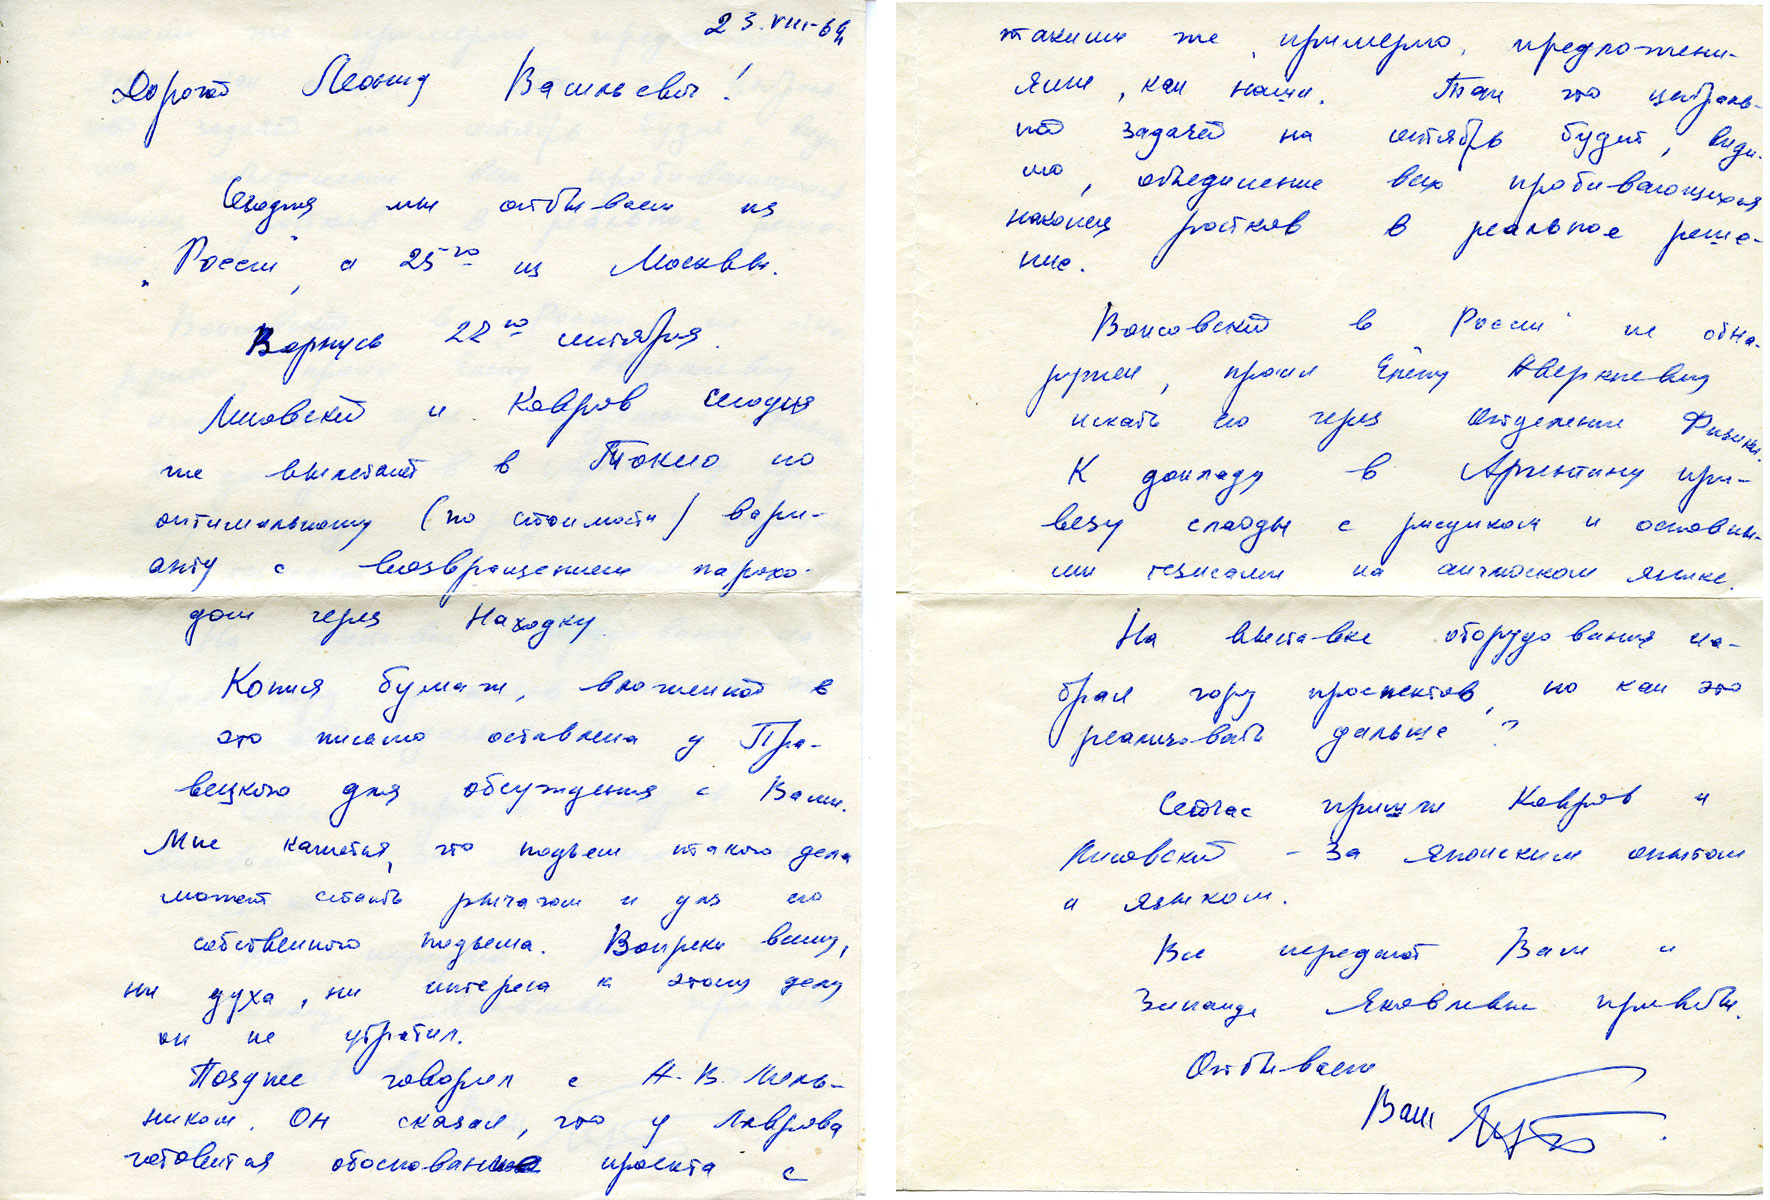 23.VIII-69
Дорогой Леонид Васильевич!
Сегодня мы отбываем из
„России", а 25-го из Москвы.
Вернусь 22-го сентября.
Лисовский и Ковров сегодня
же вылетают в Токио по
оптимальному (по стоимости) вари-
анту с возвращением парохо-
дом через Находку.
Копия бумаж, вложенной в
это письмо оставлена у Пра-
вецкого для обсуждения с Вами.
Мне кажется, что подъем такого дела
может стать рычагом и для его
собственного подъема. Вопреки всему,
ни духа, ни интереса к этому делу
он не утратил.
Позднее говорил с А.В. Мель-
ником. Он сказал, что у Лаврова
готовится обоснование проекта с
такими же, примерно, предложени-
ями, как наши. Так что централь-
ной задачей на октябрь будет, види-
мо, объединение всех пробивающихся
наконец ростков в реальное реше-
ние.
Вонсовский в „России" не обна-
ружен, просил Елену Аверкиевну
искать его через Отделение Физики.
К докладу в Аргентину при-
везу слайды с рисунком и основны-
ми тезисами на английском языке.
На выставке оборудования на-
брал гору проспектов, но как это
реализовать дальше?
Сейчас пришли Ковров и
Лисовский - за японским опытом
и языком.
Все передают Вам и
Зинаиде Яковлевне приветы.
Отбываем
Ваш